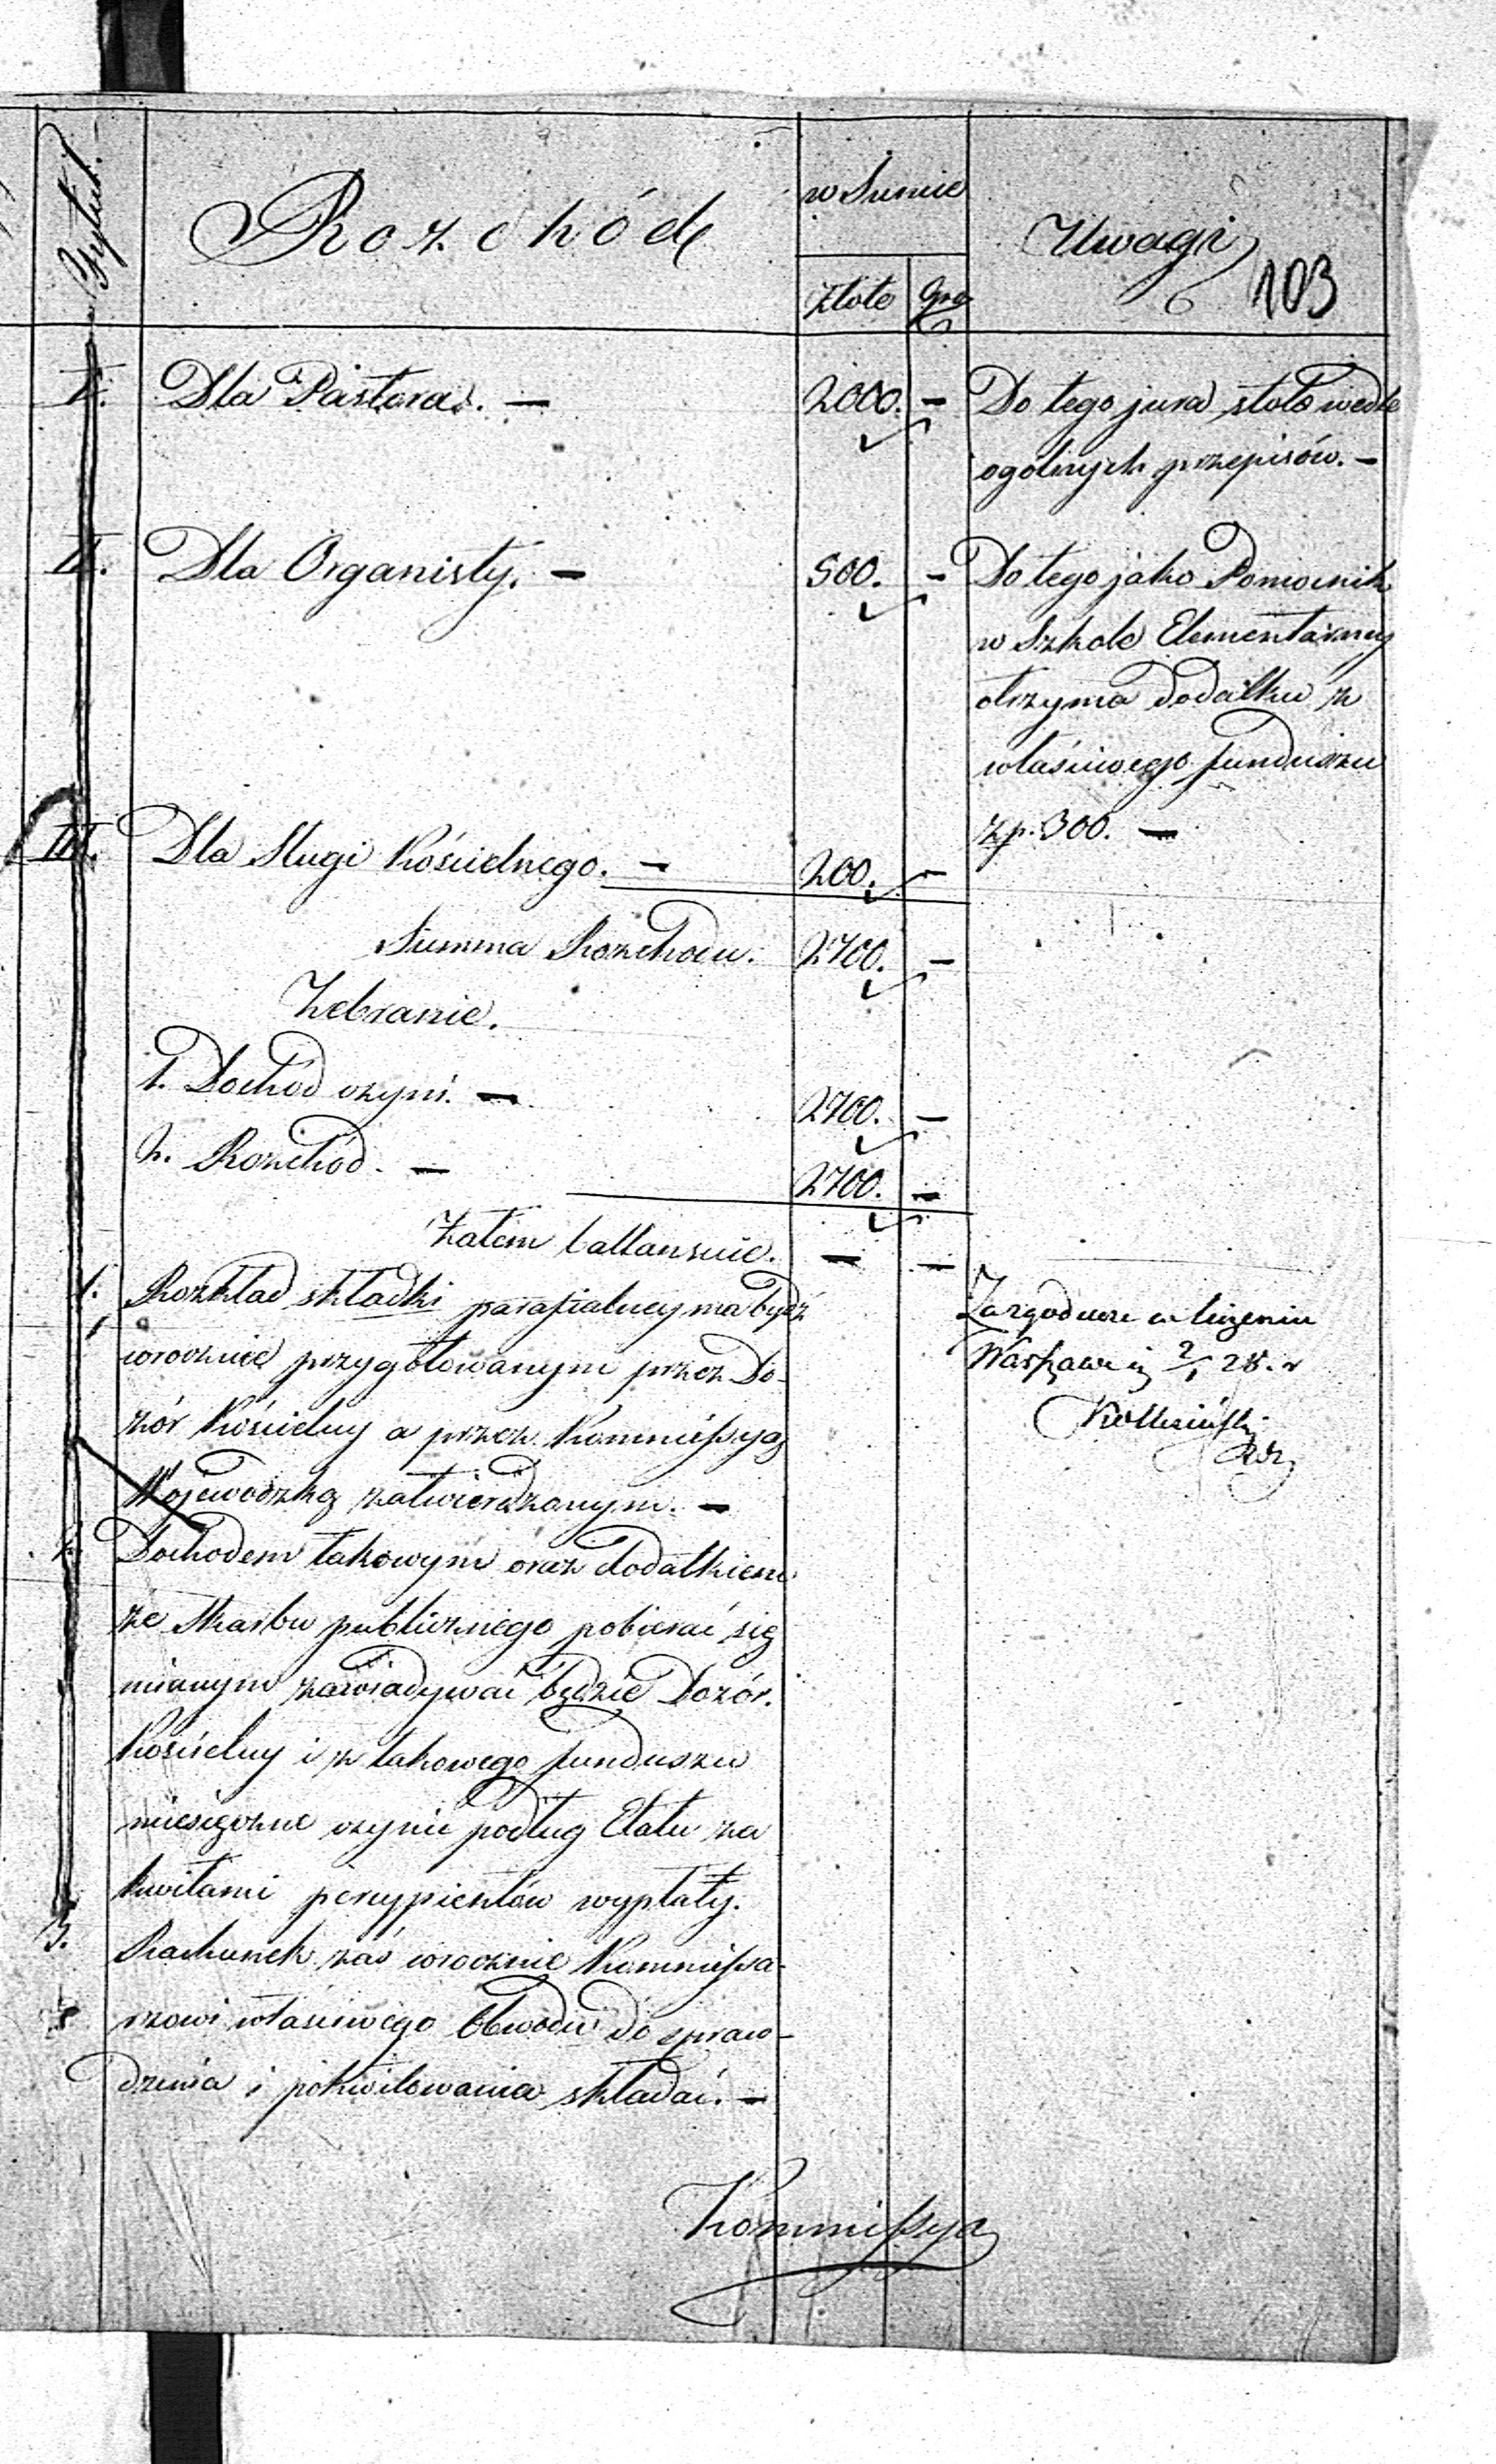 Tytuł.
Rozchód
w Sumie
Złote Gro
Uwagi
103
I. Dla Pastora. — 2000. — Do tego jura stolæ wedle
ogólnych przepisów. —
II. Dla Organisty. — 500. — Do tego jako Pomocnik
w Szkole Elementarney
otrzyma dodatku z
właściwego funduszu
zp. 300. —
III. Dla Sługi Kościelnego. — 200. —
Summa Rozchodu. 2700. —
Zebranie.
1. Dochód czyni. — 2700. —
2. Rozchód. — 2700. —
Zatem ballansuie. — —
1. Rozkład składki parafialney ma bydź
corocznie przygotowanym przez Do-
zór Kościelny a przez Kommissyą
Wojewodzką zatwierdzonym. —
2. Dochodem takowym oraz dodatkiem
ze Skarbu publicznego pobierać się
mianym zawiadywać będzie Dozór
Kościelny i z takowego funduszu
miesięczne czynić podług Etatu za
kwitami percypientów wypłaty.
3. Rachunek zaś corocznie Kommissa-
rzowi właściwego Obwodu do spraw-
dzenia i pokwitowania składać. —
Kommissya
Warszawie 2/1 28. r